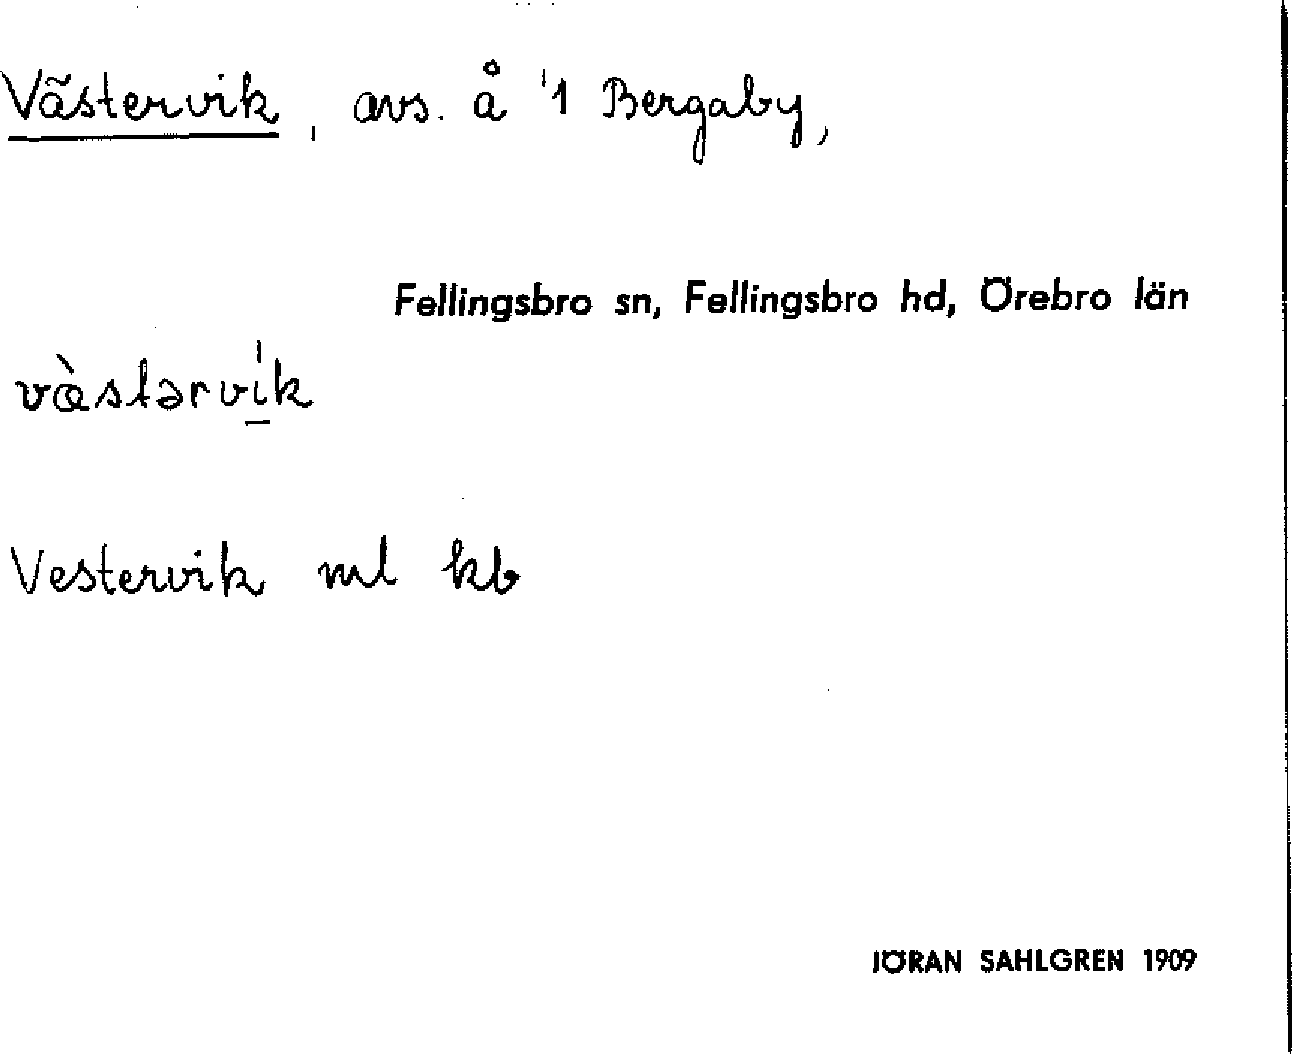 Västervik, avs. å '1 Bergaby,
Fellingsbro sn, Fellingsbro hd, Örebro län
væ̀stərvi̱̍k
Vestervik ml kb
JÖRAN SAHLGREN 1909